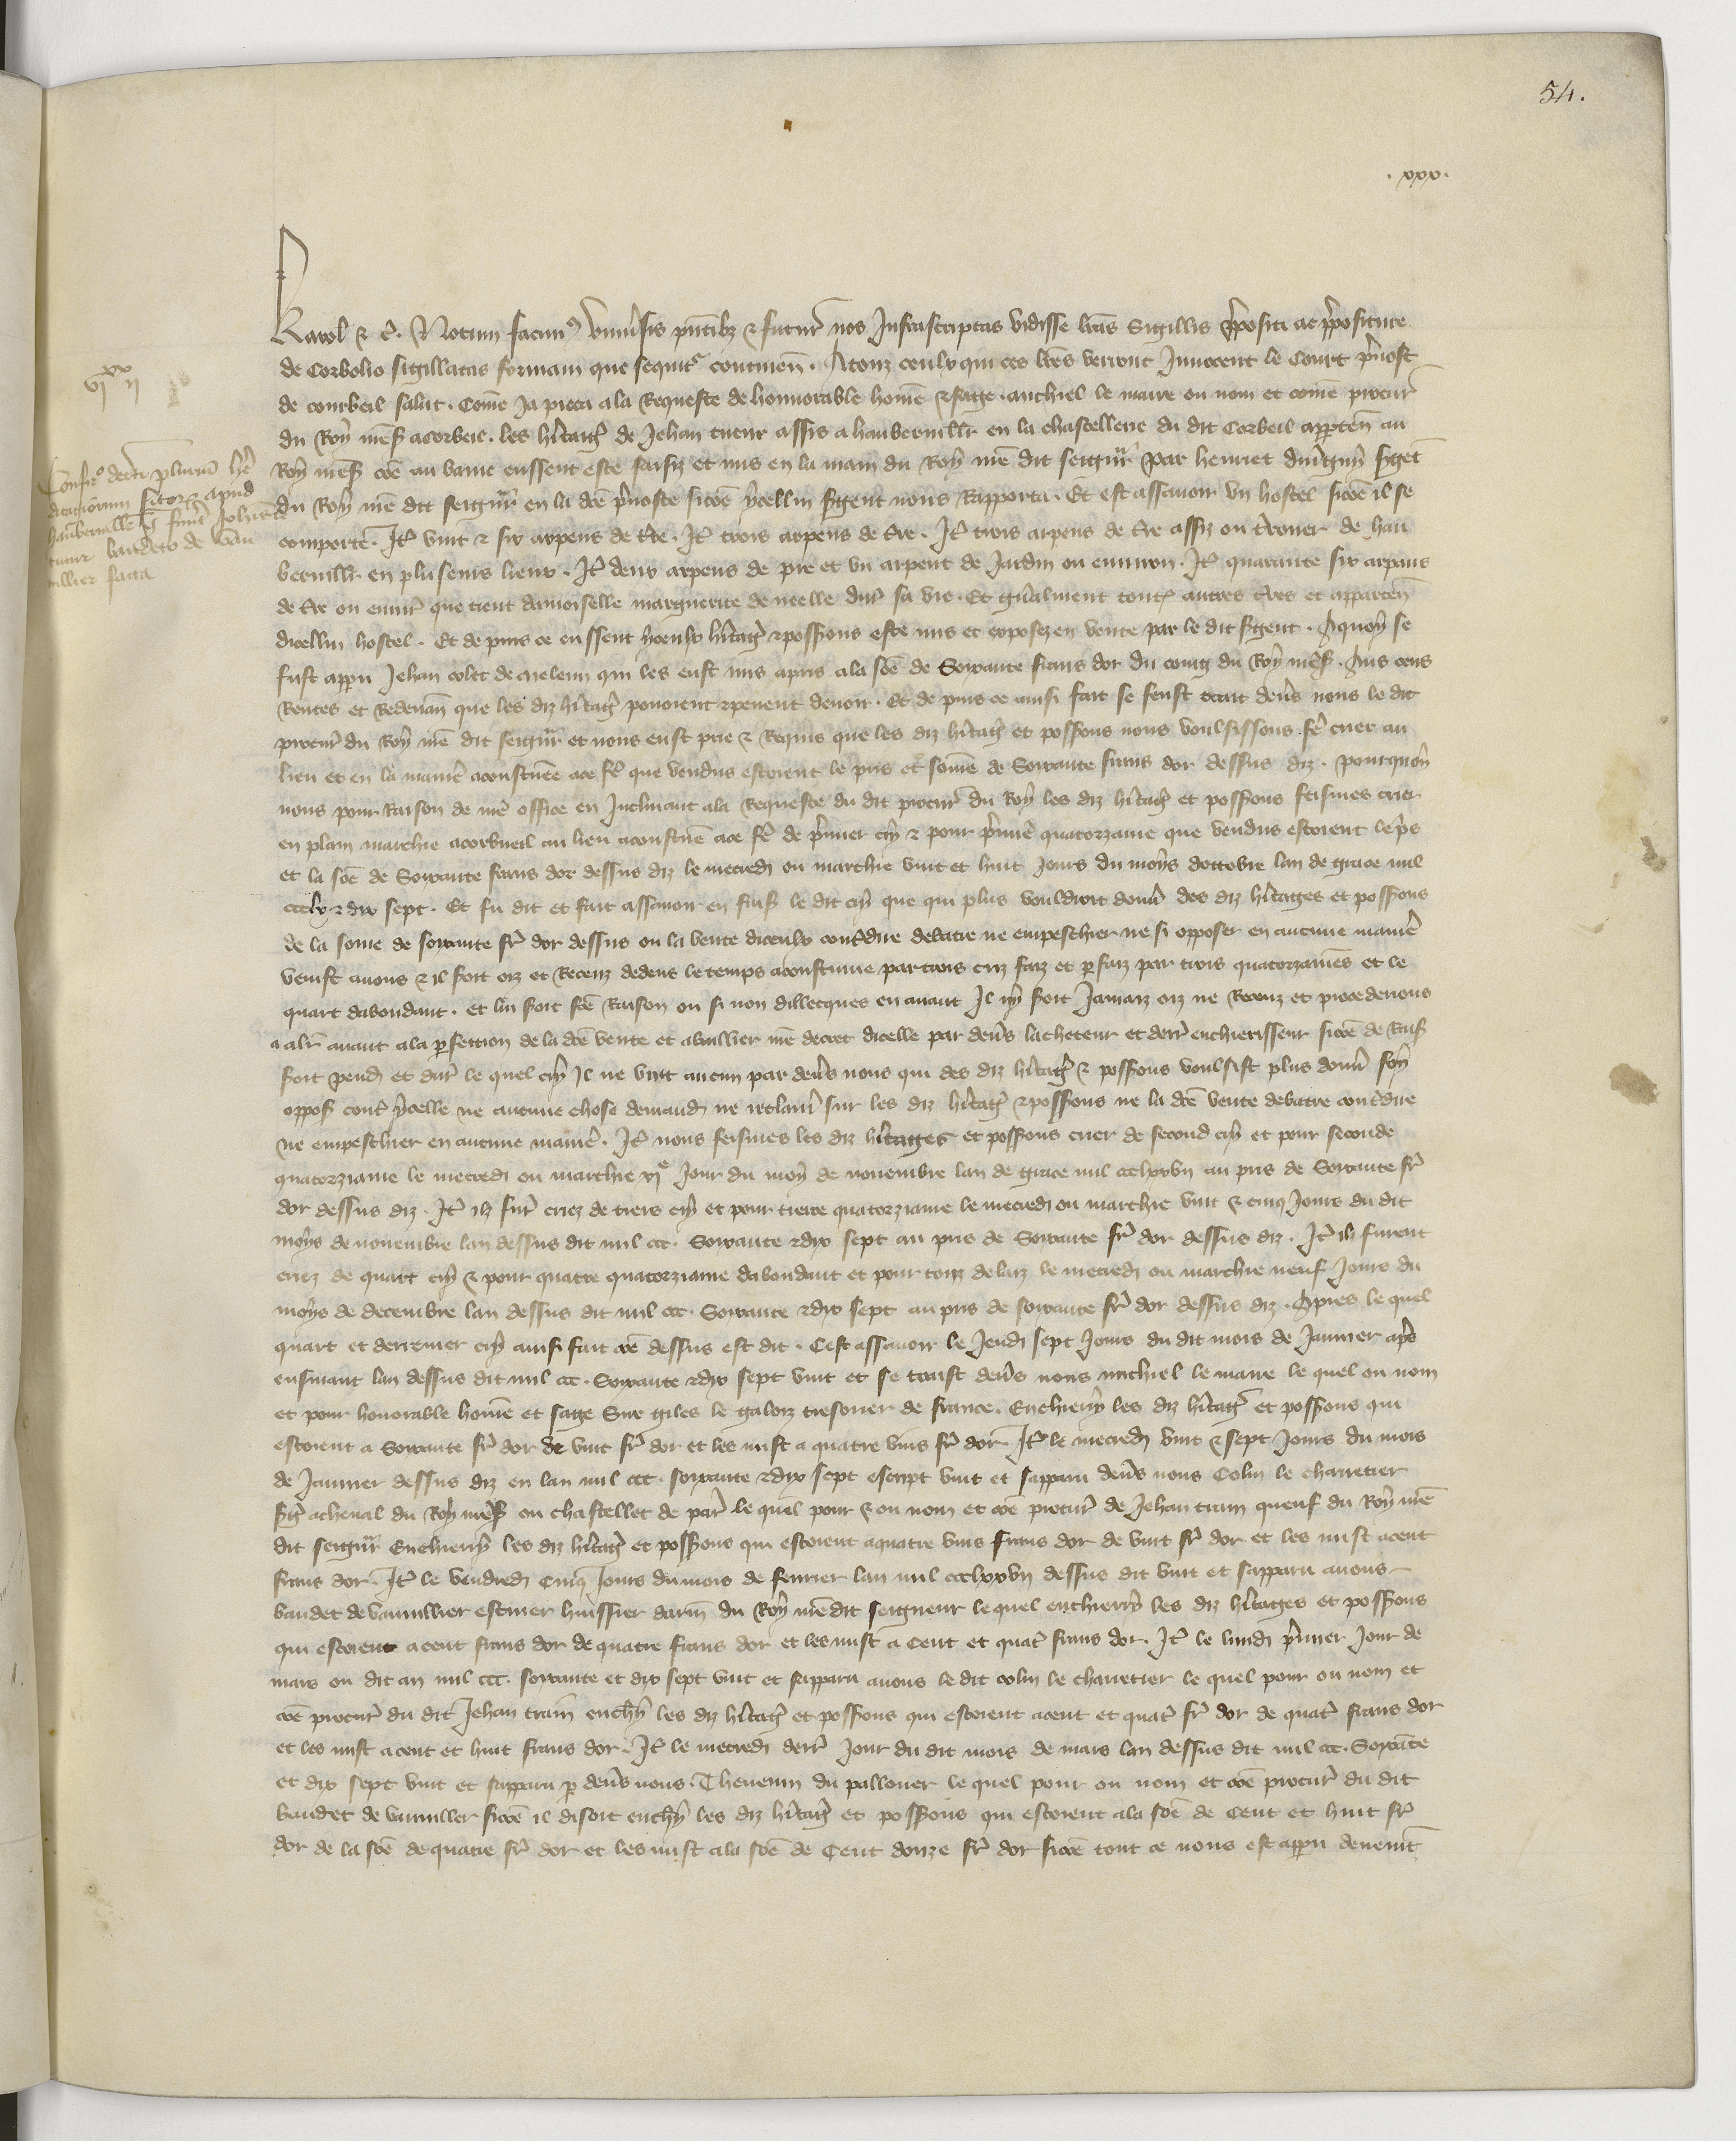 54.
. xxx .
Karol & c̃. Notum facim᷒ universis pñtibz & futur̃ nos Infrascriptas vidisse lr̃as Sigillis p̃positi ac p̃positure
de Corbolio sigillatas formam que sequit᷑ continen̄. A touz ceulx qui ces lr̃es verront Innocent le Court p̃vost
de courbeil salut. Com̃e Ja pieca a la Requeste de honnorable hom̃e & sage . michiel le maire ou nom et com̃e procur̃
du Roy nr̃es̃ a corbeil. les hr̃itaig̃ de Jehan tueur assis a haubervillr̃ en la chastellerie du dit Corbeil apptẽn au
Roy nr̃es̃ cõe aubaine eussent este saisiz et mis en la main du Roy nr̃e dit seigñr par henriet s̃gẽt
du Roy nr̃e dit seigñr en la dc̃e p̃voste sicõe ycellui s̃gent nous Rapporta. Et est assavoir un hostel sicõe il se
comporte. It̃ vint & six arpens de tr̃e. It̃ trois arpens de tr̃e. It̃ trois arpens de tr̃e assiz ou tr̃ouer de hau
bervillr̃ en pluseurs lieux. It̃ deux arpens de pre et un arpent de Jardin ou environ. It̃ quarante six arpans
de tr̃e ou envir̃ que tient damoiselle marguerite de neelle dur̃ sa vie. Et gñalment tout̃ autres tr̃es et apparten̄
dicellui hostel. Et depuis ce eussent yceulx hr̃itag̃ & poss̃ions este mis et exposez en vente par le dit s̃gent. A quoy se
fust apparu Jehan colet de meleun qui les eust mis a pris a la sõe de Soixante frans dor du coing du Roy nr̃es̃. Aus cens
Rentes et Redevañ que les diz hr̃itag̃ povoient & peuent devoir. Et depuis ce ainsi fait se feust trait dev̾s nous le dit
procur̃ du Roy nr̃e dit seigñr et nous eust prie & Requis que les diz hr̃itag̃ et poss̃ons nous voulsissons fẽ crier au
lieu et en la manier̃ acoustumee a ce fẽ que vendus estoient le pris et som̃e de Soixante frans dor dessus diz. pour quoy
nous pour Raison de nr̃e office en Inclinant a la Requeste du dit procur̃ du Roy les diz hr̃itag̃ et poss̃ons feismes crier
en plain marchie a corbueil au lieu acoustume a ce fẽ de p̃mier cry & pour p̃mier̃ quatorzaine que vendus estoient le p̃s
et la sõe de Soixante frans dor dessus diz le mecredi ou marchie vint et huit Jours du moys doctobre lan de grace mil
ccclx & dix sept. Et fu dit et fait assavoir en fais̃ le dit cry que qui plus vouldroit donñ des diz hr̃itages et poss̃ons
de la some de soixante fr̃ dor dessus ou la vente diceulx contredire debatre ne empeschier ne si opposer en aucune manier̃
venist a nous & il soit oiz et Receuz dedens le temps acoustume par trois criz faiz et p̱faiz par trois quatorzaines et le
quart dabondant. et lui soit fc̃e Raison ou si non dillecques en avant Il ny soit Jamaiz oiz ne Receuz et procederions
a alr̃ avant a la p̱fection de la dc̃e vente et a baillier nr̃e decret dicelle par dev̾s lacheteur et derr̃ enchierisseur sicõe de Rais̃
soit pend̃ et dur̃ le quel cry Il ne vint aucun par dev̾s nous qui des diz hr̃itag̃ & poss̃ons voulsist plus donñ soy
oppos̃ cont̃ ycelle ne aucune chose demand̃ ne reclam̃ sur les diz hr̃itag̃ & poss̃ons ne la dc̃e vente debatre contredire
ne empeschier en aucune manier̃. It̃ nous feismes les diz hr̃itages et poss̃ons crier de second cry et pour seconde
quatorziaine le mecredi ou marchie xje Jour du moy de novembre lan de grace mil ccclxxvij au pris de Soixante fr̃
dor dessus diz. It̃ ilz fur̃ criez de tiers cry et pour tierce quatorziaine le mecredi ou marchie vint & cinq Jours du dit
moys de novembre lan dessus dit mil ccc. Soixante & dix sept au pris de Soixante fr̃ dor dessus diz. It̃ ilz furent
criez de quart cry & pour quatre quatorziaine dabondant et pour touz delaiz le mecredi ou marchie neuf Jours du
moys de decembre lan dessus dit mil ccc. Soixante & dix sept au pris de soixante fr̃ dor dessus diz. Apres le quel
quart et derrenier cry ainsi fait cõe dessus est dit. Cest assavoir le Jeudi sept Jours du dit mois de Janvier ap̃s
ensuivant lan dessus dit mil ccc. Soixante & dix sept vint et se traist dev̾s nous michiel le maire le quel ou nom
et pour honorable hom̃e et sage Sire giles le galoiz tresorier de france. Enchiery les diz hr̃itag̃ et poss̃ons qui
estoient a Soixante fr̃ dor de vint fr̃ dor et les mist a quatre vins fr̃ dor. It̃ le mecredi vint & sept Jours du mois
de Janvier dessus diz en lan mil ccc. soixante & dix sept escript vint et sapparu dev̾s nous Colin le charretier
s̃g̃ a cheval du Roy nr̃es̃ ou chastellet de par̃ le quel pour & ou nom et cõe procur̃ de Jehan train queuf du Roy nr̃e
dit seigñr Enchiery les diz hr̃itag̃ et poss̃ons qui estoient a quatre vins frans dor de vint fr̃ dor et les mist a cent
frans dor. It̃ le vendredi Cinq Jours du mois de fevrier lan mil ccclxxvij dessus dit vint et sapparu a nous
baudet de vauvillier escuier huissier darm̃ du Roy nr̃e dit seigneur le quel enchierry les diz hr̃itages et poss̃ons
qui estoient a cent frans dor de quatre frans dor et les mist a Cent et quat̃ frans dor. It̃ le lundi p̃mier Jour de
mars ou dit an mil ccc. soixante et dix sept vint et sapparu a nous le dit colin le charretier le quel pour ou nom et
cõe procur̃ du dit Jehan train ench̃y les diz hr̃itag̃ et poss̃ons qui estoient a cent et quat̃ fr̃ dor de quat̃ frans dor
et les mist a cent et huit frans dor. It̃ le mecredi derr̃ Jour du dit mois de mars lan dessus dit mil ccc. Soixãte
et dix sept vint et sapparu p̱ dev̾s nous. Thevenin du pallouer le quel pour ou nom et cõe procur̃ du dit
baudet de vauviller sicõe il disoit ench̃y les diz hr̃itag̃ et poss̃ons qui estoient a la sõe de Cent et huit fr̃
dor de la sõe de quatre fr̃ dor et les mist a la sõe de Cent douze fr̃ dor sicõe tout ce nous est apparu
vjxx ij
Confir̃o decr̃ti plurim̃
sitorz apud
haubervillr̃
tueur baudeto de vau
villier facta